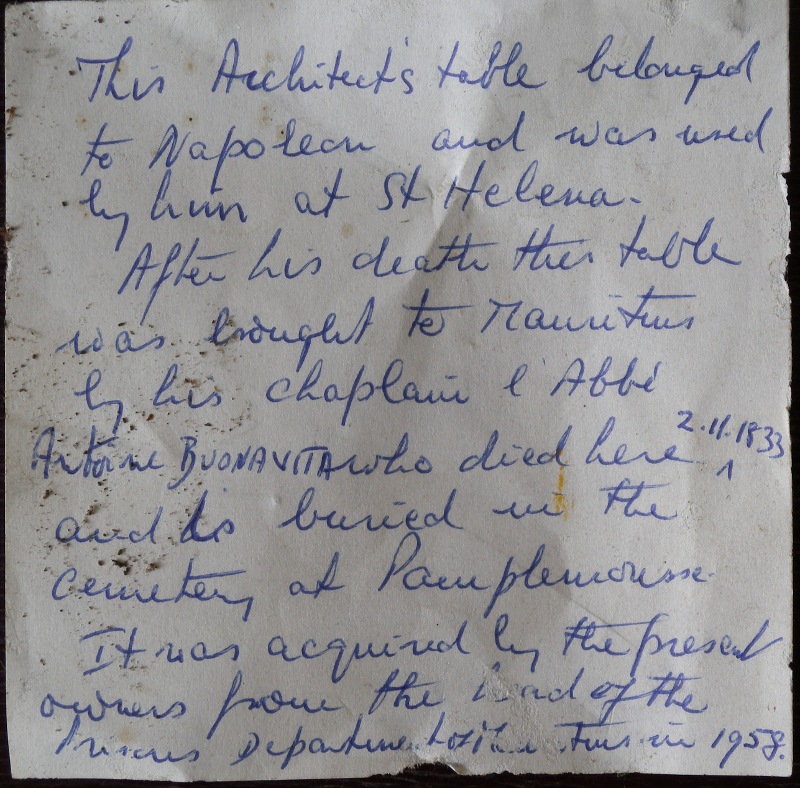 This Architect's table belonged
to Napoleon and was used
by him at St Helena.
After his death this table
was brought to Mauritius
by his chaplain l Abbé
Antoine BUONAVITA who died here 2.11.1833
and is buried in the
cemetery at Pamplemousse.
It was acquired by the present
owners from the head of the
Prisons Department in 1958.